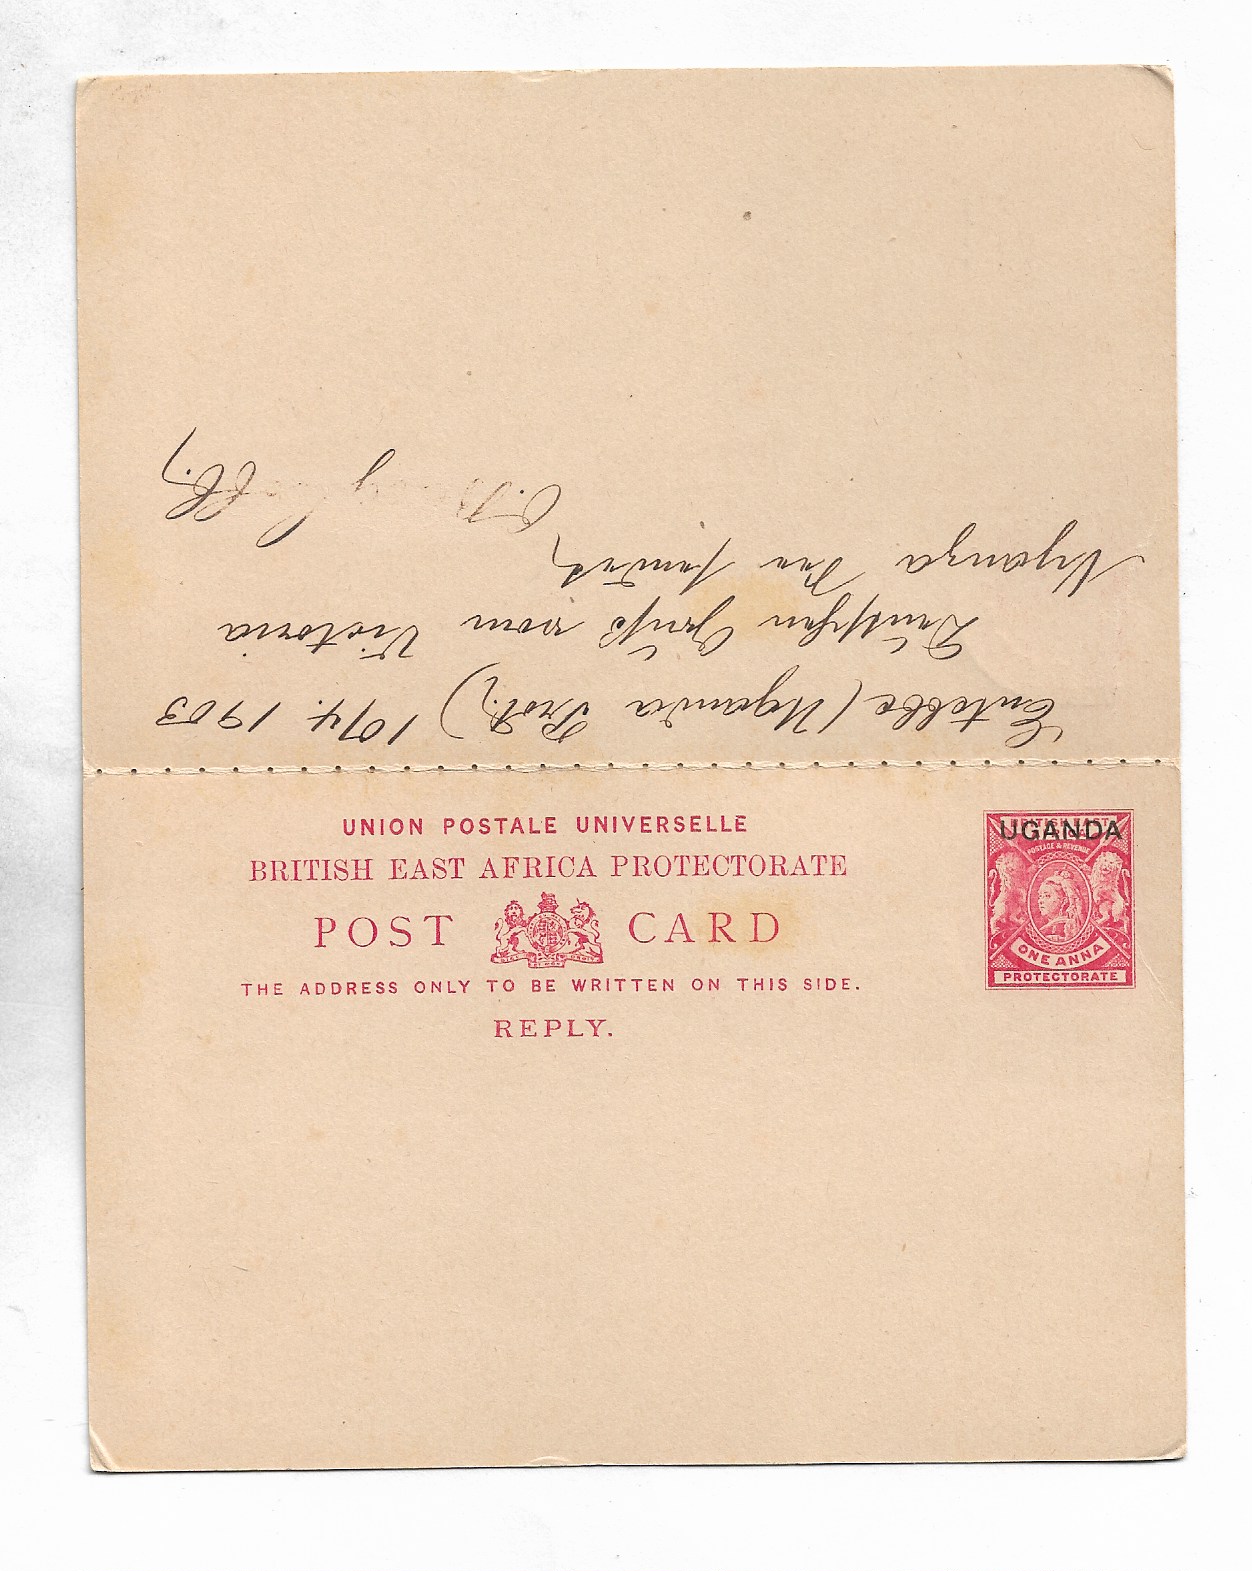 Entebbe (Uganda Prot.) 10/4. 1903
Deutschen Gruß vom Victoria
Nyanza See sendet
UNION POSTALE UNIVERSELLE
BRITISH EAST AFRICA PROTECTORATE
POST CARD
THE ADDRESS ONLY TO BE WRITTEN ON THIS SIDE.
REPLY.
UGANDA
BRITISH EAST
POSTAGE & REVENUE
ONE ANNA
PROTECTORATE